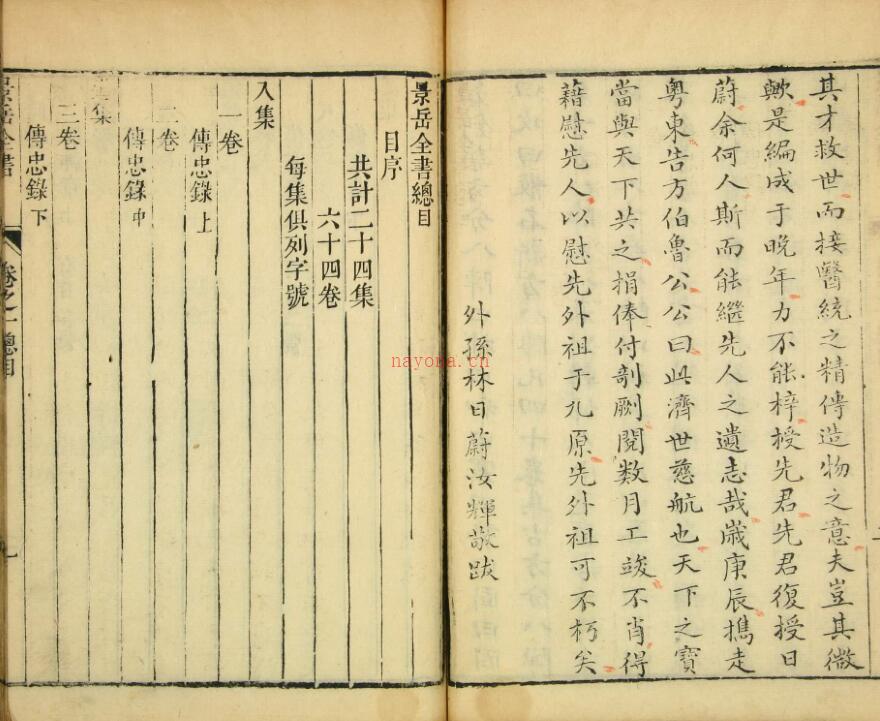 其才救世而接醫統之精傳造物之意夫豈其微
歟是編成于晚年力不能梓授先君先君復授日
蔚余何人斯而能繼先人之遺志哉歲庚辰攜走
粤東告方伯魯公公曰此濟世慈航也天下之寶
當與天下共之捐俸付剞劂閱数月工竣不肖得
藉慰先人以慰先外祖于九原先外祖可不朽矣
外孫林日蔚汝輝敬跋
景岳全書總目
目序
共計二十四集
六十四卷
每集俱列字號
入集
一卷
傳忠錄上
二卷
傳忠錄中
集
三卷
傳忠錄下
景岳全書
卷之一總目
nayona.cn